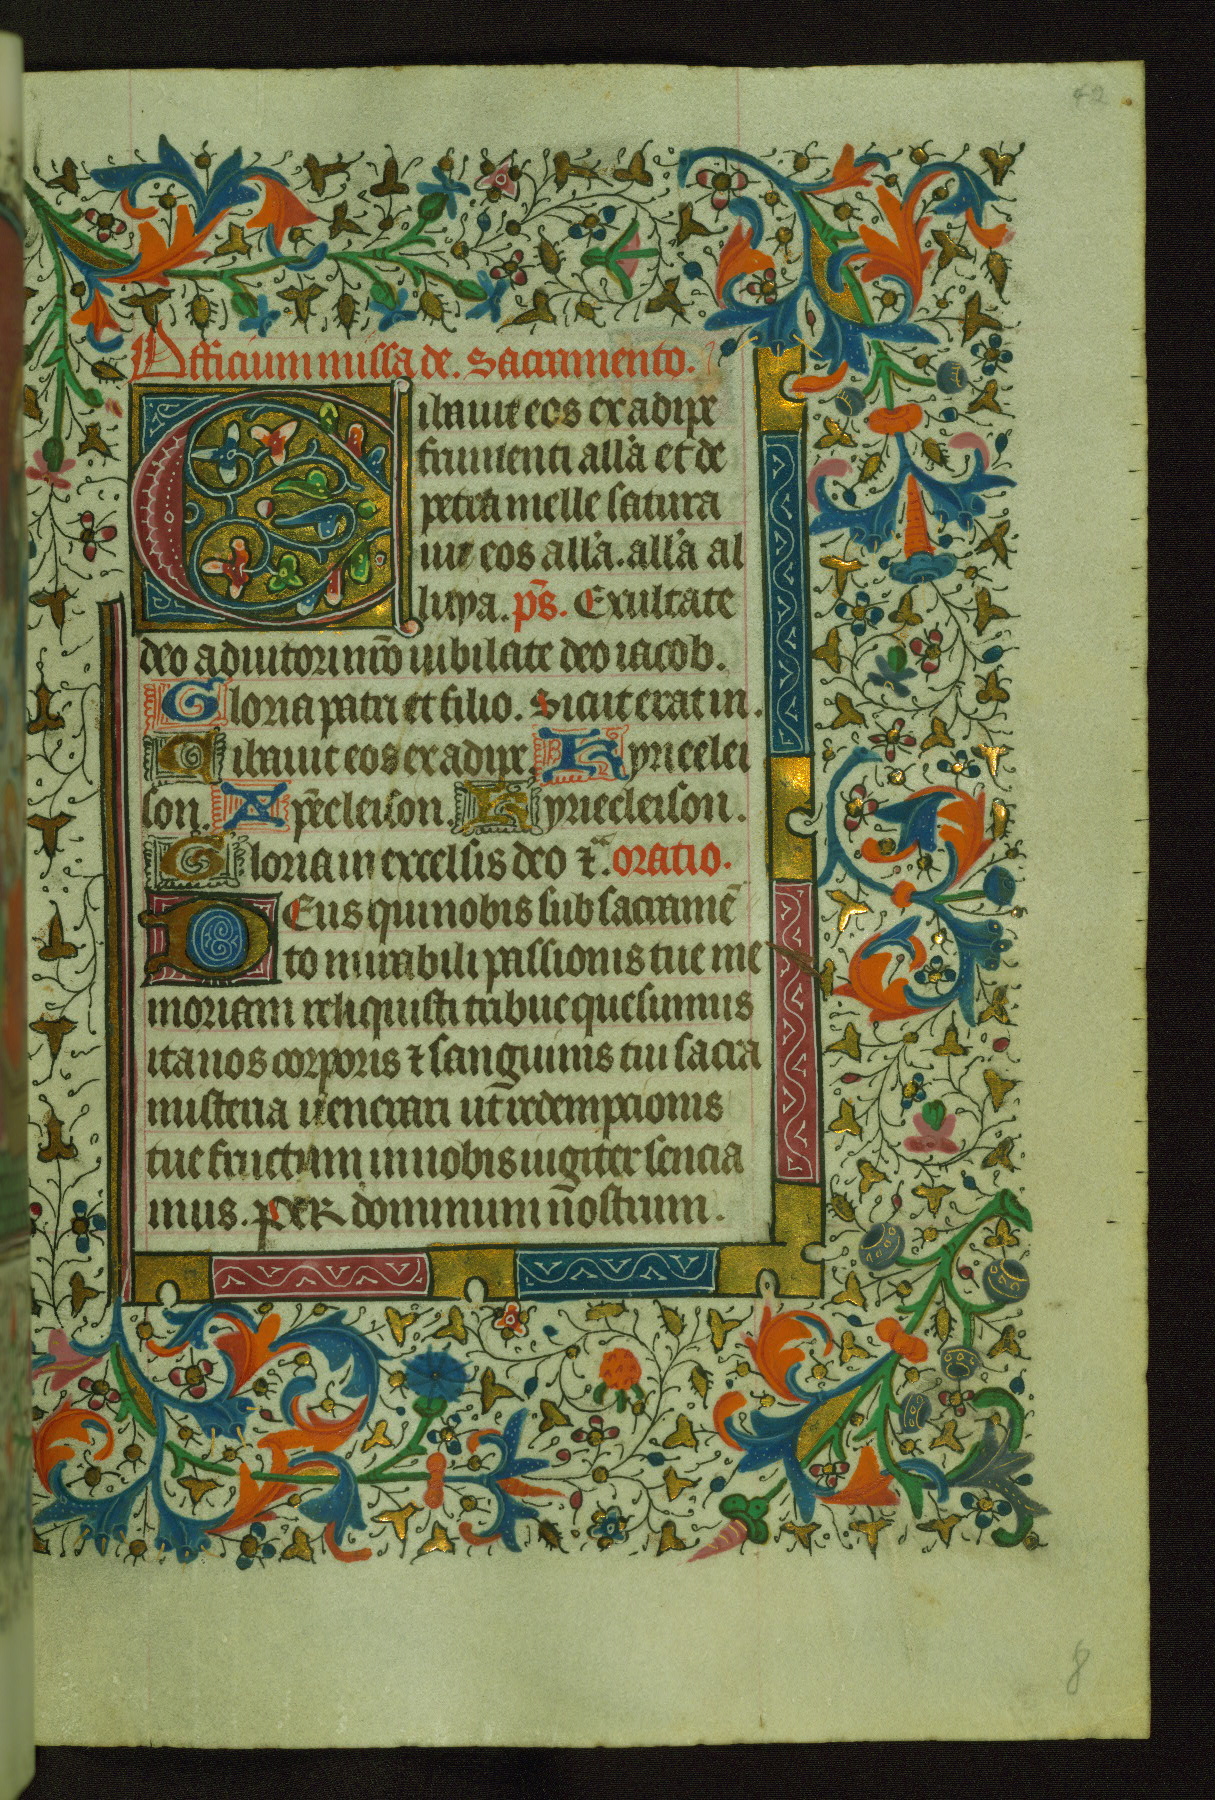 42
Officium missa de. Sacramento.
Cibauit eos ex adipe
frumenti all'a et de
petra melle satura
uit eos all'a. all'a al
luya. p̄s. Exultate
deo adiutori nr̄o iubilate deo iacob.
Gloria patri et filio. Sicut erat in.
Cibauit eos ex adipe. Kyrieelei
son. Xp̄eeleison. Kyrieeleison.
Gloria in excelsis deo ⁊c̄. oratio.
Deus qui nobis sub sacramē
to mirabili passionis tue me
moriam reliquisti tribue quesumus
ita nos corporis ⁊ sanguinis tui sacra
misteria uenerari ut redempcionis
tue fructum in nobis iugiter sencia
mus. per dominum nostrum.
8